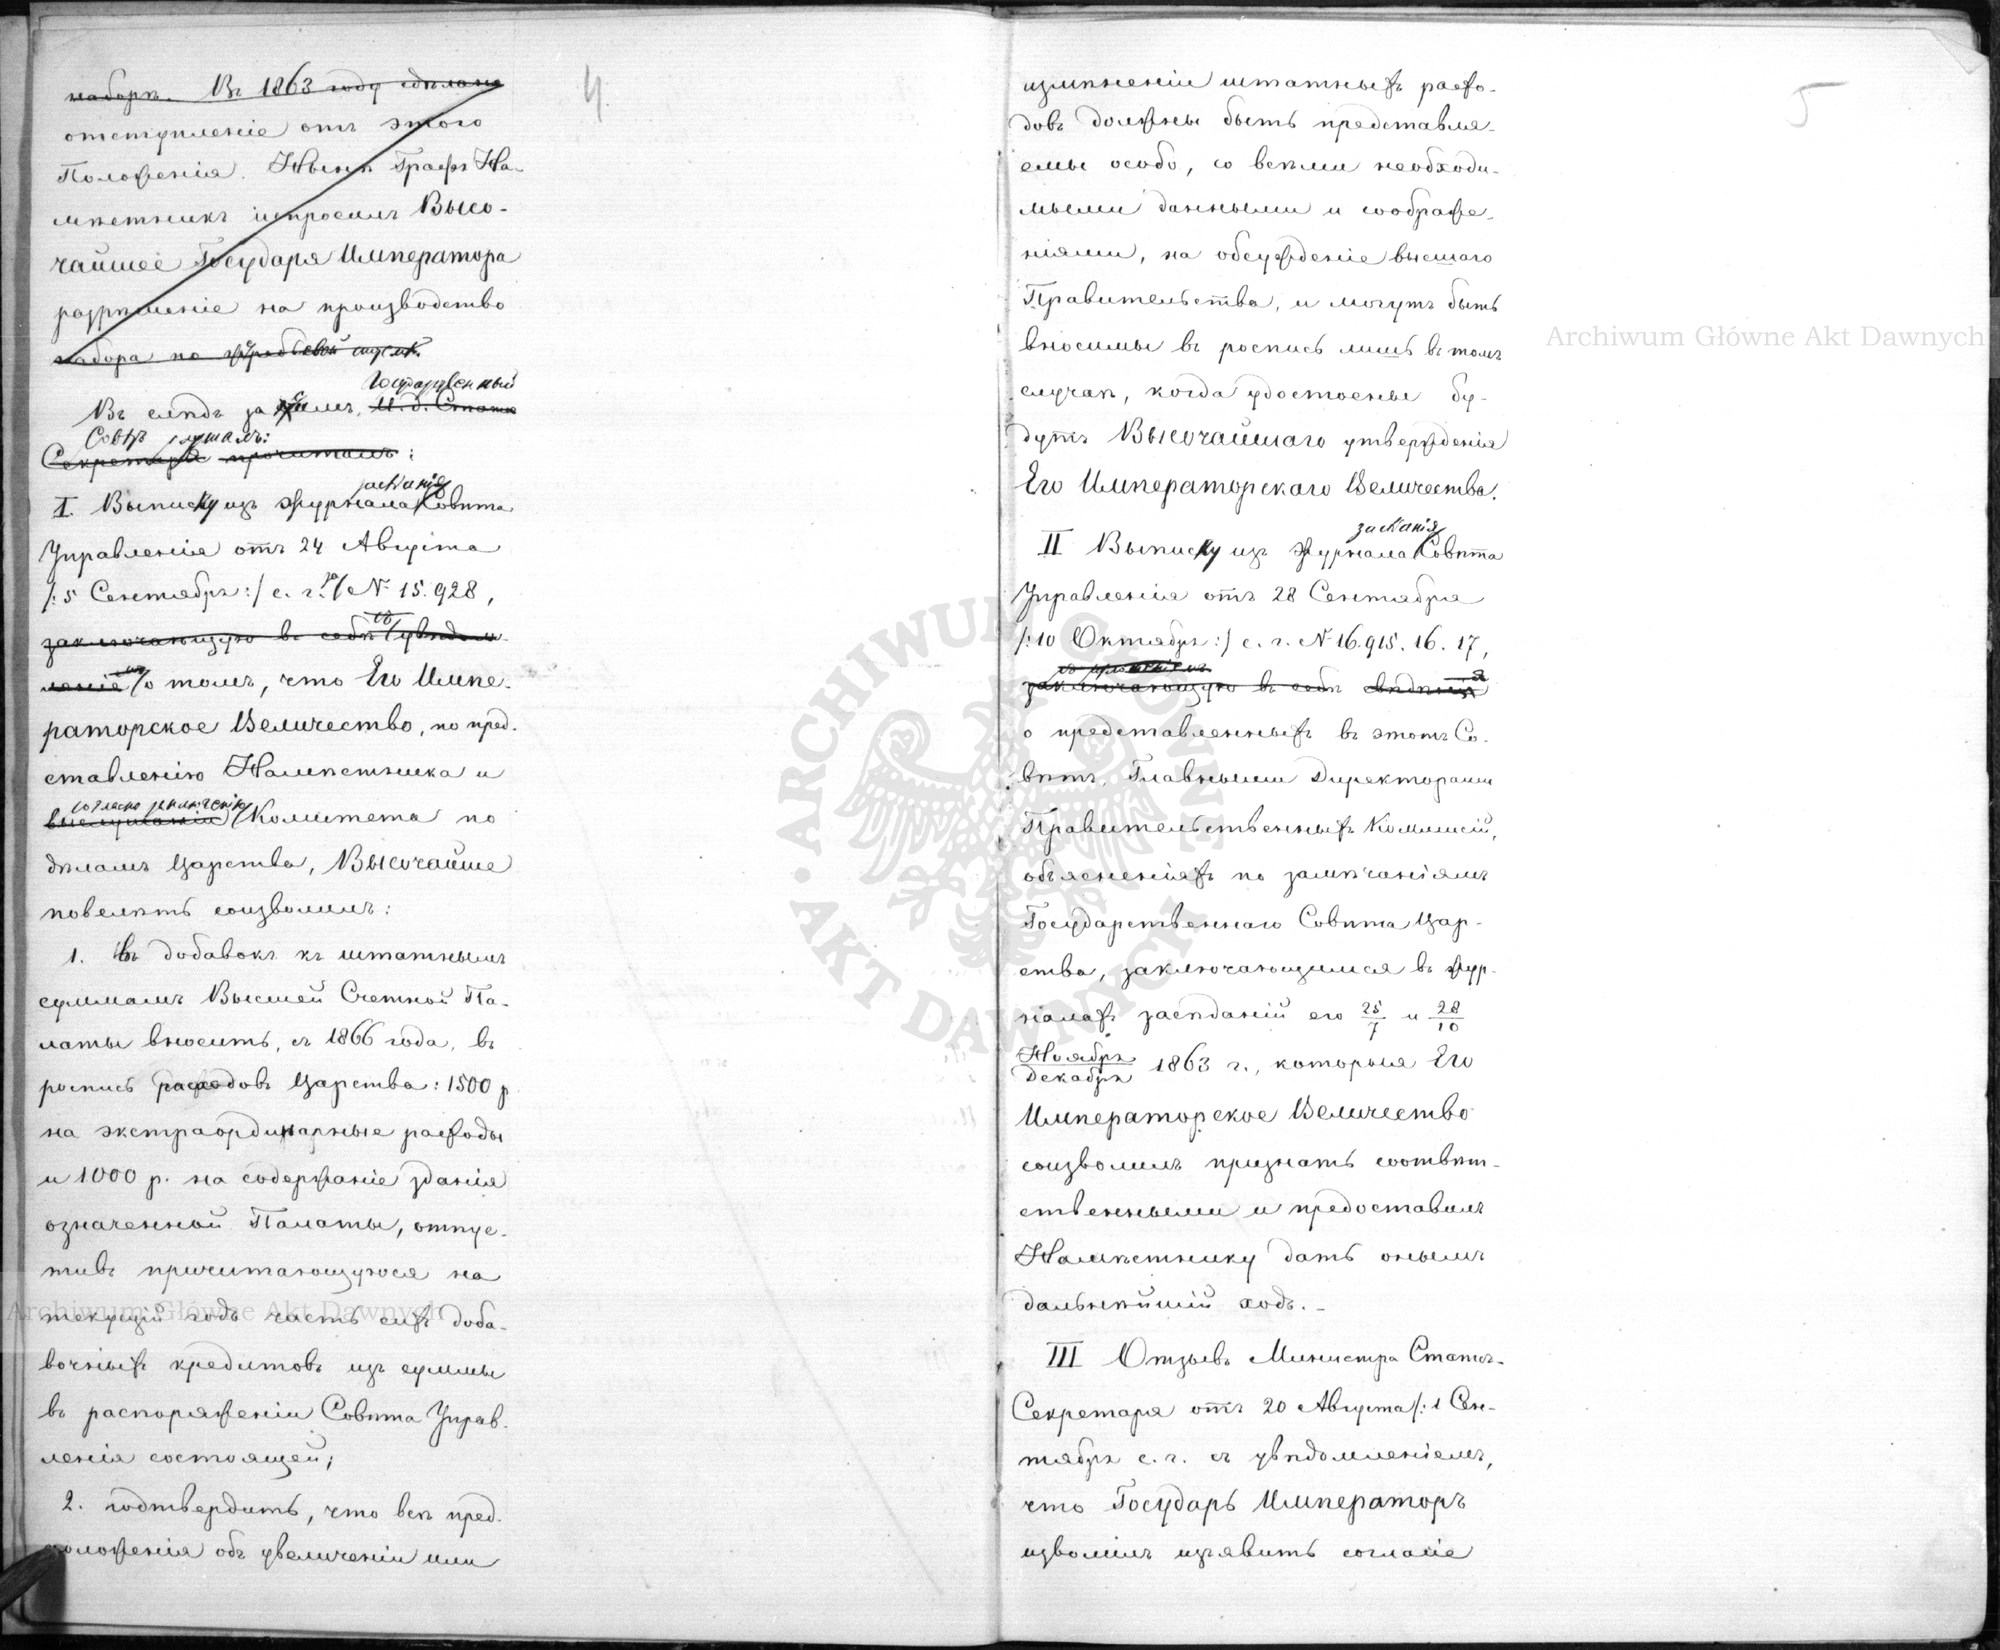 4
наборъ. Въ 1863 году сдѣлано
отступленіе отъ этого
Положенія. Нынѣ Графъ На-
мѣстникъ испросилъ Высо-
чайшее Государя Императора
разрѣшеніе на производство
набора по жребьевой системѣ.
Государственный
Въ слѣдъ за симъ, И. д. Статсъ
Совѣтъ слушалъ:
Секретаря прочиталъ:
засѣданія
I. Выписку изъ журнала Совѣта
Управленія отъ 24 Августа
/: 5 Сентября :/ с. г. за № 15.928,
заключающую въ себѣ увѣдом-
леніе о томъ, что Его Импе-
раторское Величество, по пред-
ставленію Намѣстника и
согласно заключенію
выслушаніи Комитета по
дѣламъ Царства, Высочайше
повелѣть соизволилъ:
1. Въ добавокъ къ штатнымъ
суммамъ Высшей Счетной Па-
латы вносить, съ 1866 года, въ
роспись расходовъ Царства: 1500 р
на экстраординарные расходы
и 1000 р. на содержаніе зданія
означенной Палаты, отпус-
тивъ причитающуюся на
текущій годъ часть сихъ доба-
вочныхъ кредитовъ изъ суммы
въ распоряженіи Совѣта Управ-
ленія состоящей;
2. подтвердить, что всѣ пред-
положенія объ увеличеніи или
5
измѣненіи штатныхъ расхо-
довъ должны быть представля-
емы особо, со всѣми необходи-
мыми данными и соображе-
ніями, на обсужденіе высшаго
Правительства, и могутъ быть
вносимы въ роспись лишь въ томъ
случаѣ, когда удостоены бу-
дутъ Высочайшаго утвержденія
Его Императорскаго Величества.
засѣданія
II Выписку изъ журнала Совѣта
Управленія отъ 28 Сентября
/: 10 Октября :/ с. г. № 16.915. 16. 17,
заключающую въ себѣ свѣдѣнія
о представленныхъ въ этотъ Со-
вѣтъ, Главными Директорами
Правительственныхъ Коммисій,
объясненіяхъ по замѣчаніямъ
Государственнаго Совѣта Цар-
ства, заключающимся въ жур-
налахъ засѣданій его 25/7 и 28/10
Ноября/Декабря 1863 г., которыя Его
Императорское Величество
соизволилъ признать соотвѣт-
ственными и предоставилъ
Намѣстнику дать онымъ
дальнѣйшій ходъ. -
III Отзывъ Министра Статсъ-
Секретаря отъ 20 Августа /: 1 Сен-
тября с. г. съ увѣдомленіемъ,
что Государь Императоръ
изволилъ изъявить согласіе
Archiwum Główne Akt Dawnych
Archiwum Główne Akt Dawnych
ARCHIWUM GŁÓWNE · AKT DAWNYCH ·